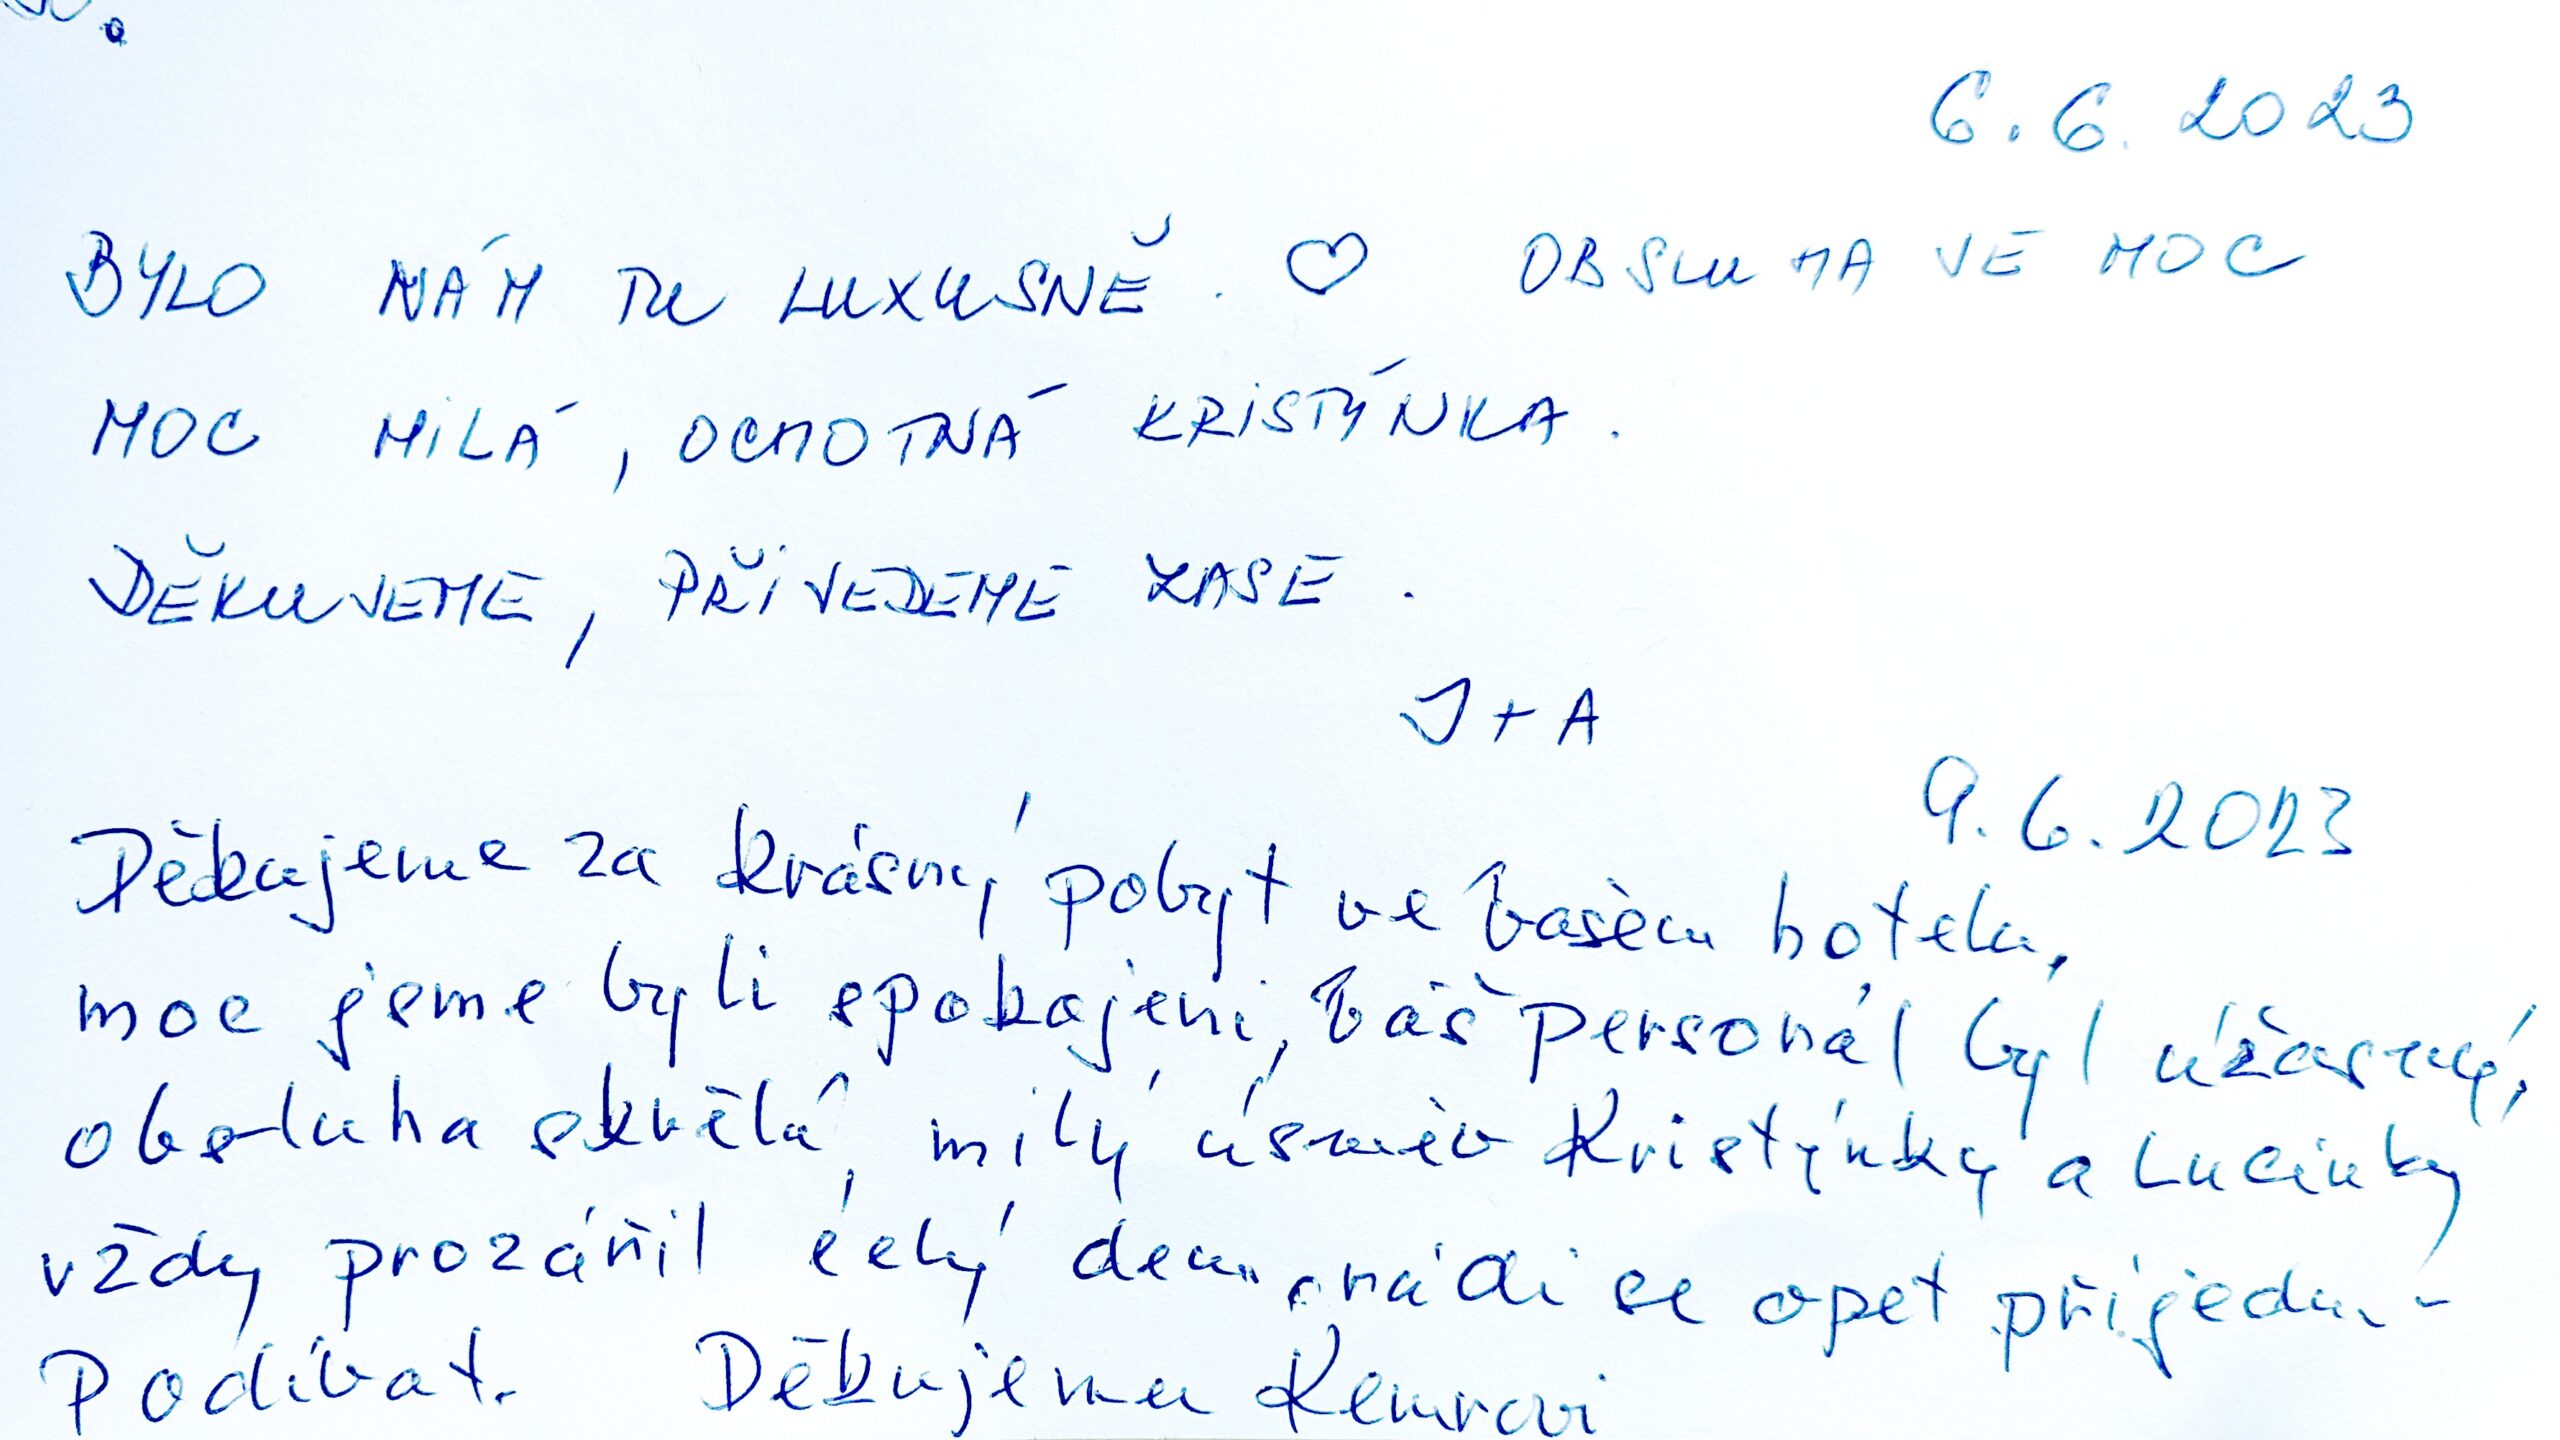 6.6.2023
BYLO NÁM TU LUXUSNĚ. ♡ OBSLUHA VE MOC
MOC MILÁ, OCHOTNÁ KRISTÝNKA.
DĚKUJEME, PŘIVEDEME ZASE.
J + A
9.6.2023
Děkujeme za krásný pobyt ve vašem hotelu,
moc jsme byli spokojeni, váš personál byl úžasný,
obsluha skvělá, milý úsměv Kristýnky a Lucinky
vždy prozářil celý den, rádi se opět přijedem
podívat. Děkujeme